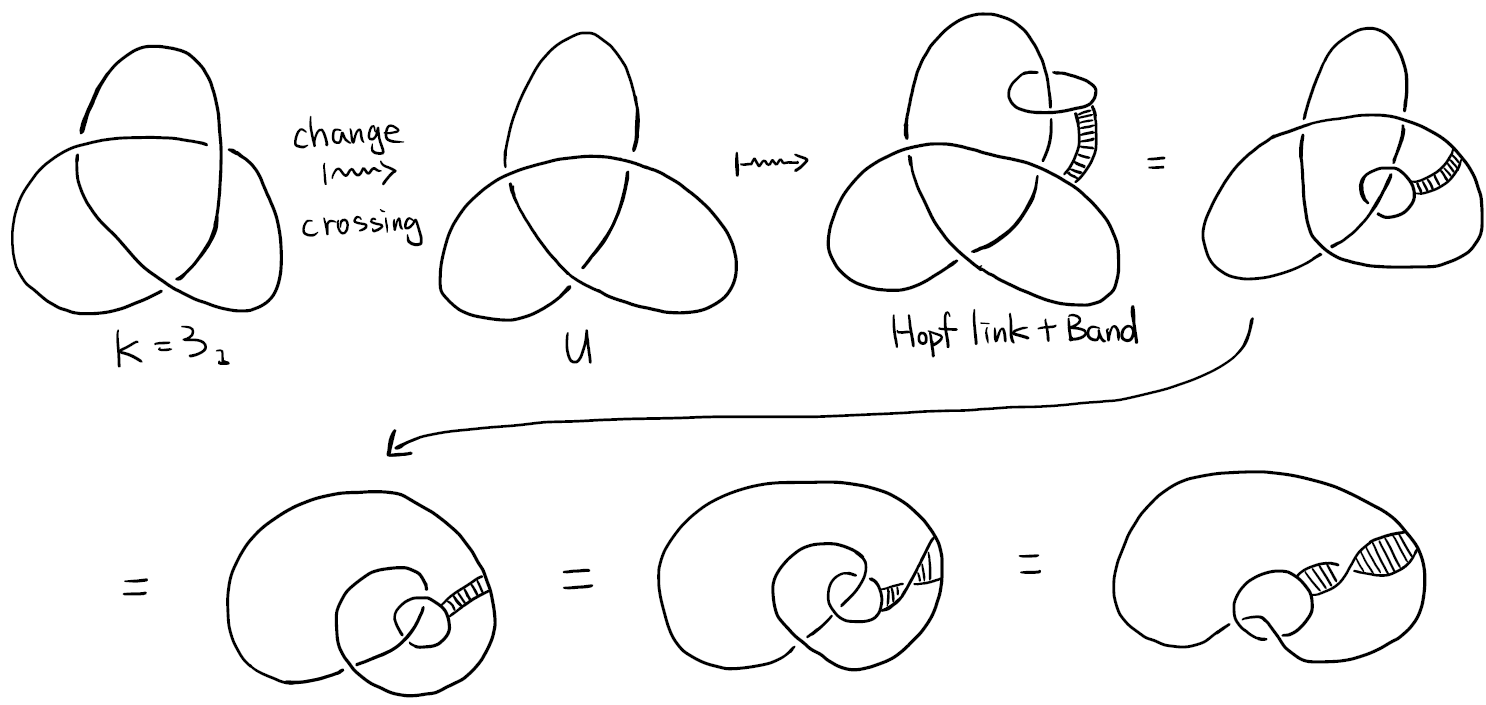 change
crossing
=
K = 3₁
U
Hopf link + Band
=
=
=